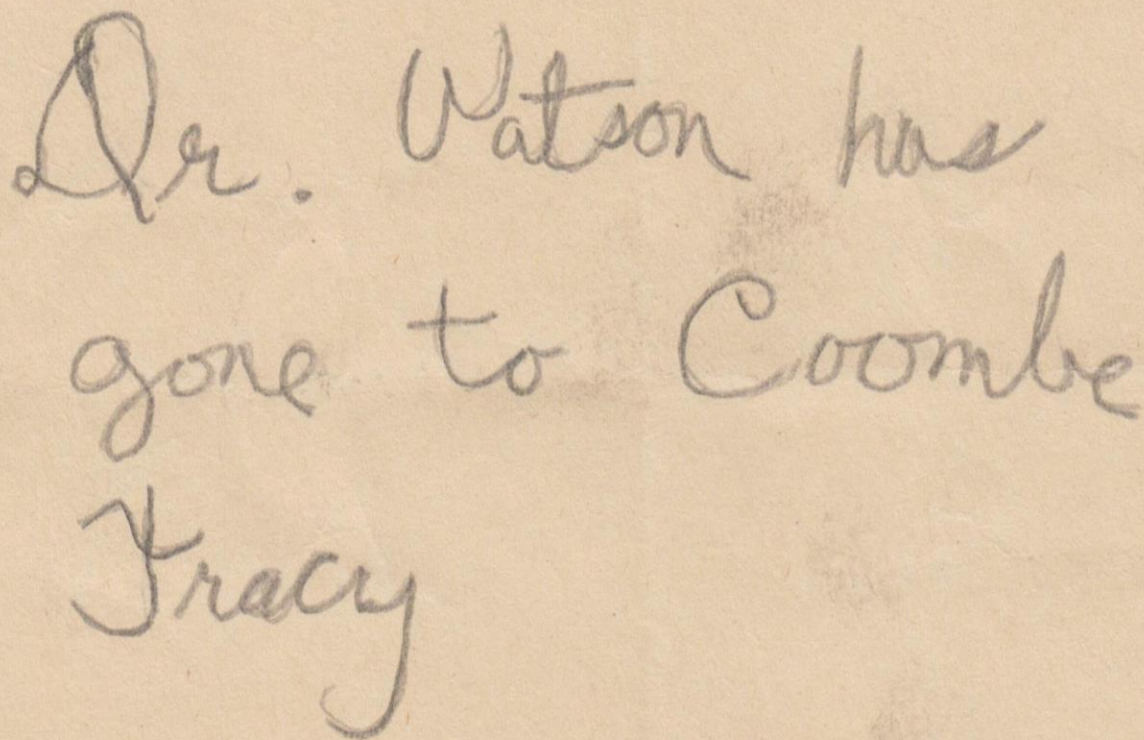 Dr. Watson has
gone to Coombe
Tracy